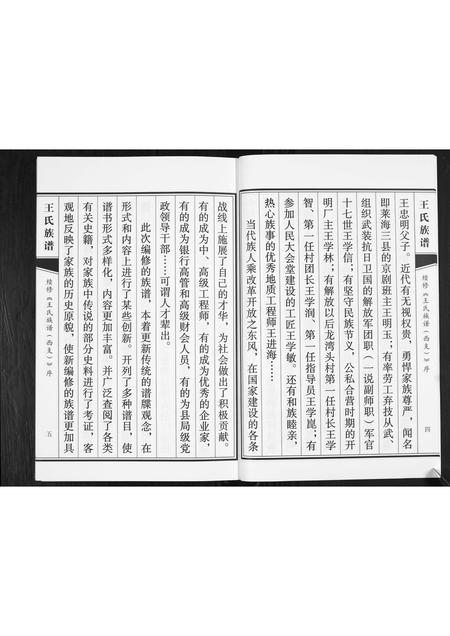 王氏族谱
续修《王氏族谱(西支)》序
四
王忠明父子。近代有无视权贵，勇悍家族尊严，闻名
即莱海三县的京剧班主王明玉；有率劳工弃技从武、
组织武装抗日卫国的解放军团职（一说副师职）军官
十七世王学信；有坚守民族节义、公私合营时期的开
明厂主王学林；有解放以后龙湾头村第一任村长王学
智、第一任村团长王学润、第一任指导员王学崑；有
参加人民大会堂建设的工匠王学敏。还有和族睦亲，
热心族事的优秀地质工程师王进海……
当代族人乘改革开放之东风，在国家建设的各条
战线上施展了自己的才华，为社会做出了积极贡献。
有的成为中、高级工程师，有的成为优秀的企业家，
有的成为银行高管和高级财会人员，有的为县局级党
政领导干部……可谓人才辈出。
此次编修的族谱，本着更新传统的谱牒观念，在
形式和内容上进行了某些创新。开列了多种谱目，使
谱书形式多样化，内容更加丰富。并广泛查阅了各类
有关史籍，对家族中传说的部分史料进行了考证，客
观地反映了家族的历史原貌，使新编修的族谱更加具
王氏族谱
续修《王氏族谱(西支)》序
五